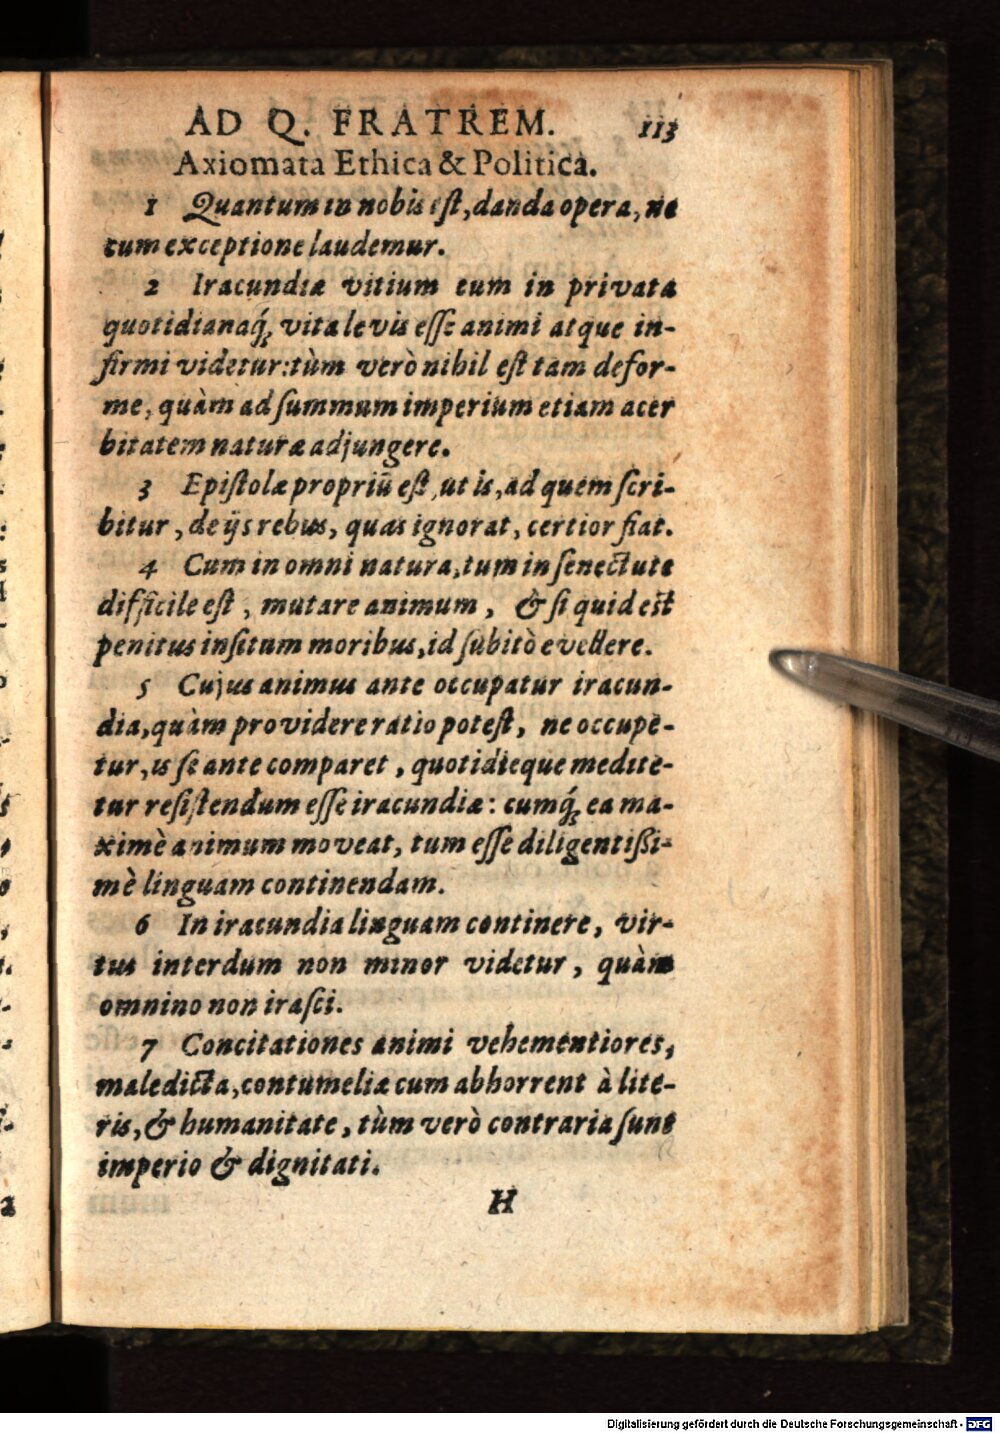 AD Q. FRATREM. 113
Axiomata Ethica & Politica.
1 Quantum in nobis est, danda opera, ne
cum exceptione laudemur.
2 Iracundiæ vitium cum in privata
quotidianaq́; vita levis esse animi atque in-
firmi videtur: tùm verò nihil est tam defor-
me, quàm ad summum imperium etiam acer
bitatem naturæ adjungere.
3 Epistolæ propriū est, ut is, ad quem scri-
bitur, de ijs rebus, quas ignorat, certior fiat.
4 Cum in omni natura, tum in senectute
difficile est, mutare animum, & si quid est
penitus insitum moribus, id subitò evellere.
5 Cujus animus ante occupatur iracun-
dia, quàm providere ratio potest, ne occupe-
tur, is se ante comparet, quotidieque medite-
tur resistendum esse iracundiæ: cumq́; ea ma-
ximè animum moveat, tum esse diligentißi-
mè linguam continendam.
6 In iracundia linguam continere, vir-
tus interdum non minor videtur, quàm
omnino non irasci.
7 Concitationes animi vehementiores,
maledicta, contumeliæ cum abhorrent à lite-
ris, & humanitate, tùm verò contraria sunt
imperio & dignitati.
H
Digitalisierung gefördert durch die Deutsche Forschungsgemeinschaft - DFG